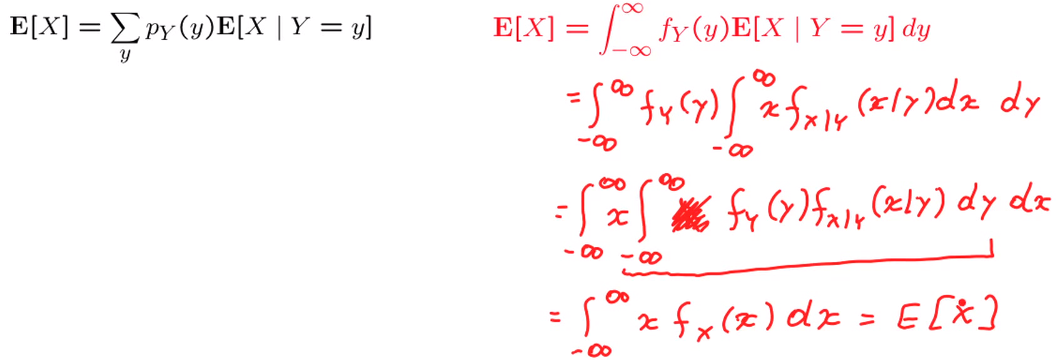 E[X] = ∑_y p_Y(y)E[X | Y = y]
E[X] = ∫_{-∞}^{∞} f_Y(y)E[X | Y = y] dy
= ∫_{-∞}^{∞} f_Y(y) ∫_{-∞}^{∞} x f_{X|Y}(x|y) dx dy
= ∫_{-∞}^{∞} x ∫_{-∞}^{∞} f_Y(y) f_{X|Y}(x|y) dy dx
= ∫_{-∞}^{∞} x f_X(x) dx = E[X]